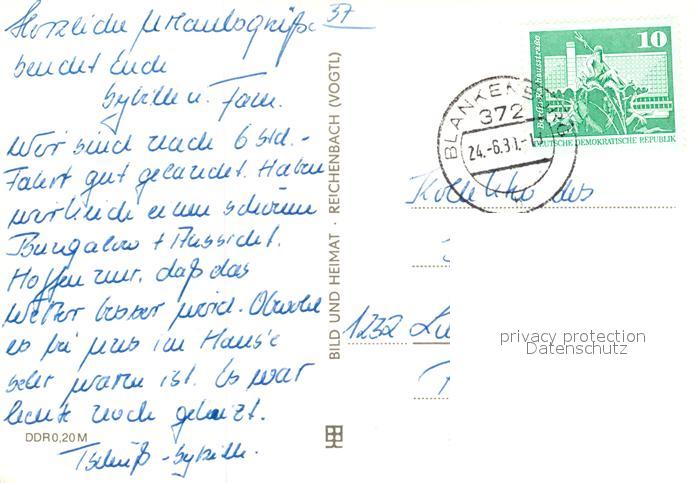 37
Herzliche Urlaubsgrüße
sendet Euch
Sybille u. Fam.
Wir sind nach 6 std.-
Fahrt gut gelandet. Haben
wirklich einen schönen
Bungalow + Aussicht.
Hoffen nur, daß das
Wetter besser wird. Obwohl
es bei uns im Hause
sehr warm ist. Es war
heute noch geheizt.
Tschüß -Sybille.
DDR 0,20 M
BILD UND HEIMAT · REICHENBACH (VOGTL)
10
DEUTSCHE DEMOKRATISCHE REPUBLIK
BLANKENBURG
372
24.-6.81.-1
Kollektiv des
1232 Lu
privacy protection
Datenschutz